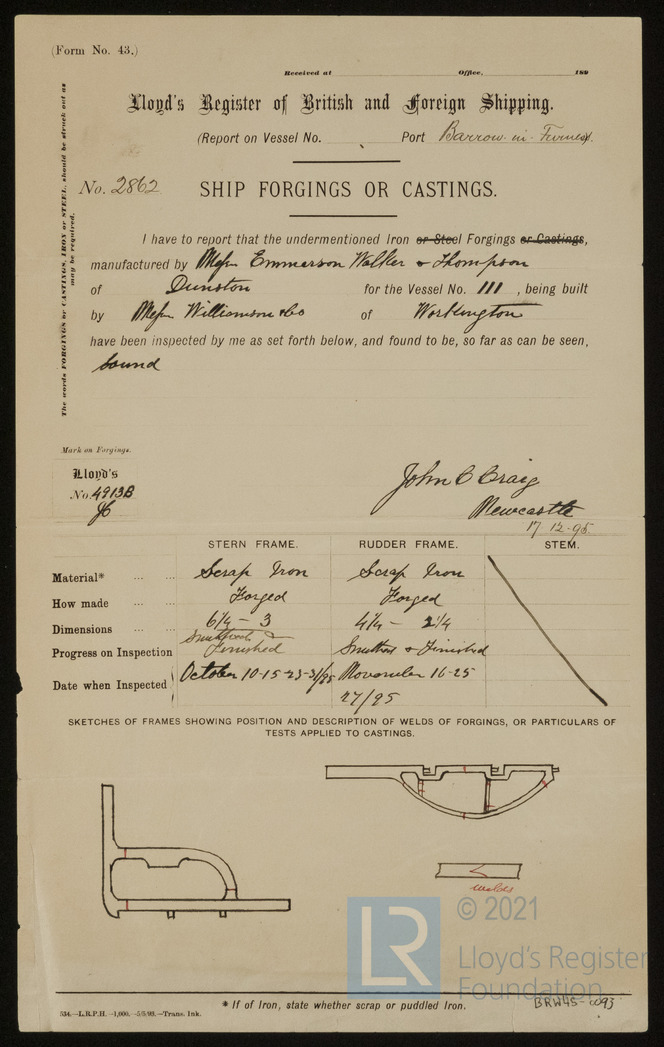 (Form No. 43.)
Received at Office, 189
Lloyd's Register of British and Foreign Shipping.
(Report on Vessel No. Port Barrow-in-Furness.
No. 2862 SHIP FORGINGS OR CASTINGS.
The words FORGINGS or CASTINGS, IRON or STEEL, should be struck out as
may be required.
I have to report that the undermentioned Iron or Steel Forgings or Castings,
manufactured by Messrs Emmerson Walker & Thompson
of Dunston for the Vessel No. 111, being built
by Messrs Williamson & Co of Workington
have been inspected by me as set forth below, and found to be, so far as can be seen,
sound
Mark on Forgings.
Lloyd's
No. 4913B
JC
John C Craig
Newcastle
17-12-95
STERN FRAME. RUDDER FRAME. STEM.
Material* ... ... Scrap Iron Scrap Iron
How made ... ... Forged Forged
Dimensions ... ... 6¼ - 3 4¼ - 2¼
Progress on Inspection Smithed & Finished Smithed & Finished
Date when Inspected October 10-15-23-31/95 November 16-25
27/95
SKETCHES OF FRAMES SHOWING POSITION AND DESCRIPTION OF WELDS OF FORGINGS, OR PARTICULARS OF
TESTS APPLIED TO CASTINGS.
welds
LR
© 2021
Lloyd's Register
Foundation
* If of Iron, state whether scrap or puddled Iron.
BRW45-0093
534.—L.R.P.H.—1,000.—5/5/93.—Trans. Ink.